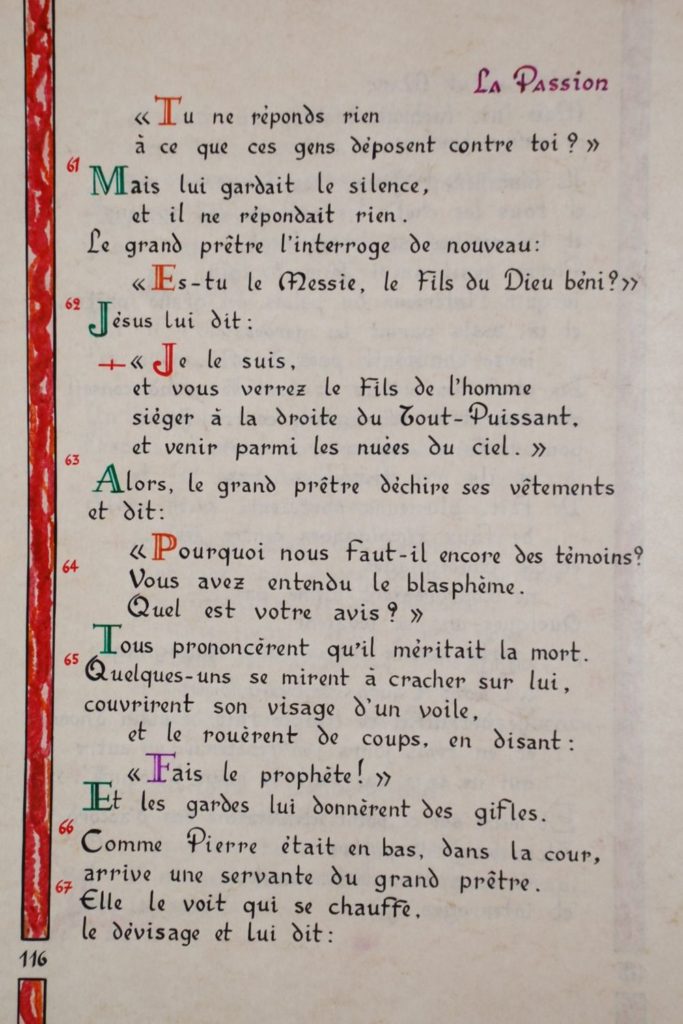 La Passion
« Tu ne réponds rien
à ce que ces gens déposent contre toi ? »
61
Mais lui gardait le silence,
et il ne répondait rien.
Le grand prêtre l'interroge de nouveau:
« Es-tu le Messie, le Fils du Dieu béni?»
62
Jésus lui dit:
+ « Je le suis,
et vous verrez le Fils de l'homme
siéger à la droite du Tout-Puissant,
et venir parmi les nuées du ciel. »
63
Alors, le grand prêtre déchire ses vêtements
et dit:
« Pourquoi nous faut-il encore des témoins?
64
Vous avez entendu le blasphème.
Quel est votre avis? »
Tous prononcèrent qu'il méritait la mort.
65
Quelques-uns se mirent à cracher sur lui,
couvrirent son visage d'un voile,
et le rouèrent de coups, en disant:
« Fais le prophète! »
Et les gardes lui donnèrent des gifles.
66
Comme Pierre était en bas, dans la cour,
arrive une servante du grand prêtre.
67
Elle le voit qui se chauffe,
le dévisage et lui dit:
116